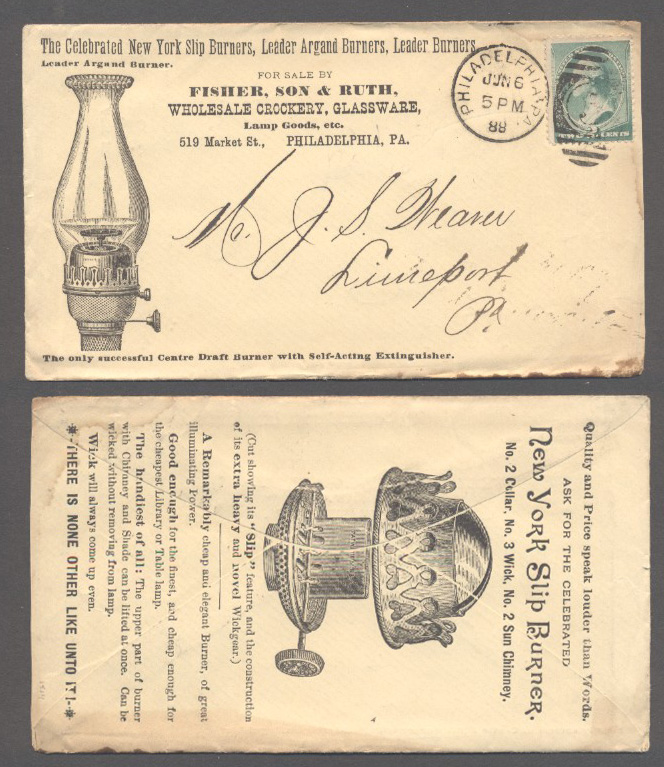 The Celebrated New York Slip Burners, Leader Argand Burners, Leader Burners
Leader Argand Burner.
FOR SALE BY
FISHER, SON & RUTH,
WHOLESALE CROCKERY, GLASSWARE,
Lamp Goods, etc.
519 Market St., PHILADELPHIA, PA.
PHILADELPHIA, PA.
JUN 6
5 PM
88
CENTS
Mr. J. S. Weaver
Limeport
Pa
The only successful Centre Draft Burner with Self-Acting Extinguisher.
Quality and Price speak louder than Words.
ASK FOR THE CELEBRATED
New York Slip Burner.
No. 2 Collar, No. 3 Wick, No. 2 Sun Chimney.
(Cut showing its "Slip" feature, and the construction
of its extra heavy and novel Wickgear.)
A Remarkably cheap and elegant Burner, of great
illuminating Power.
Good enough for the finest, and cheap enough for
the cheapest Library or Table lamp.
The handiest of all: The upper part of burner
with Chimney and Shade can be lifted at once. Can be
wicked without removing from lamp.
Wick will always come up even.
THERE IS NONE OTHER LIKE UNTO IT!